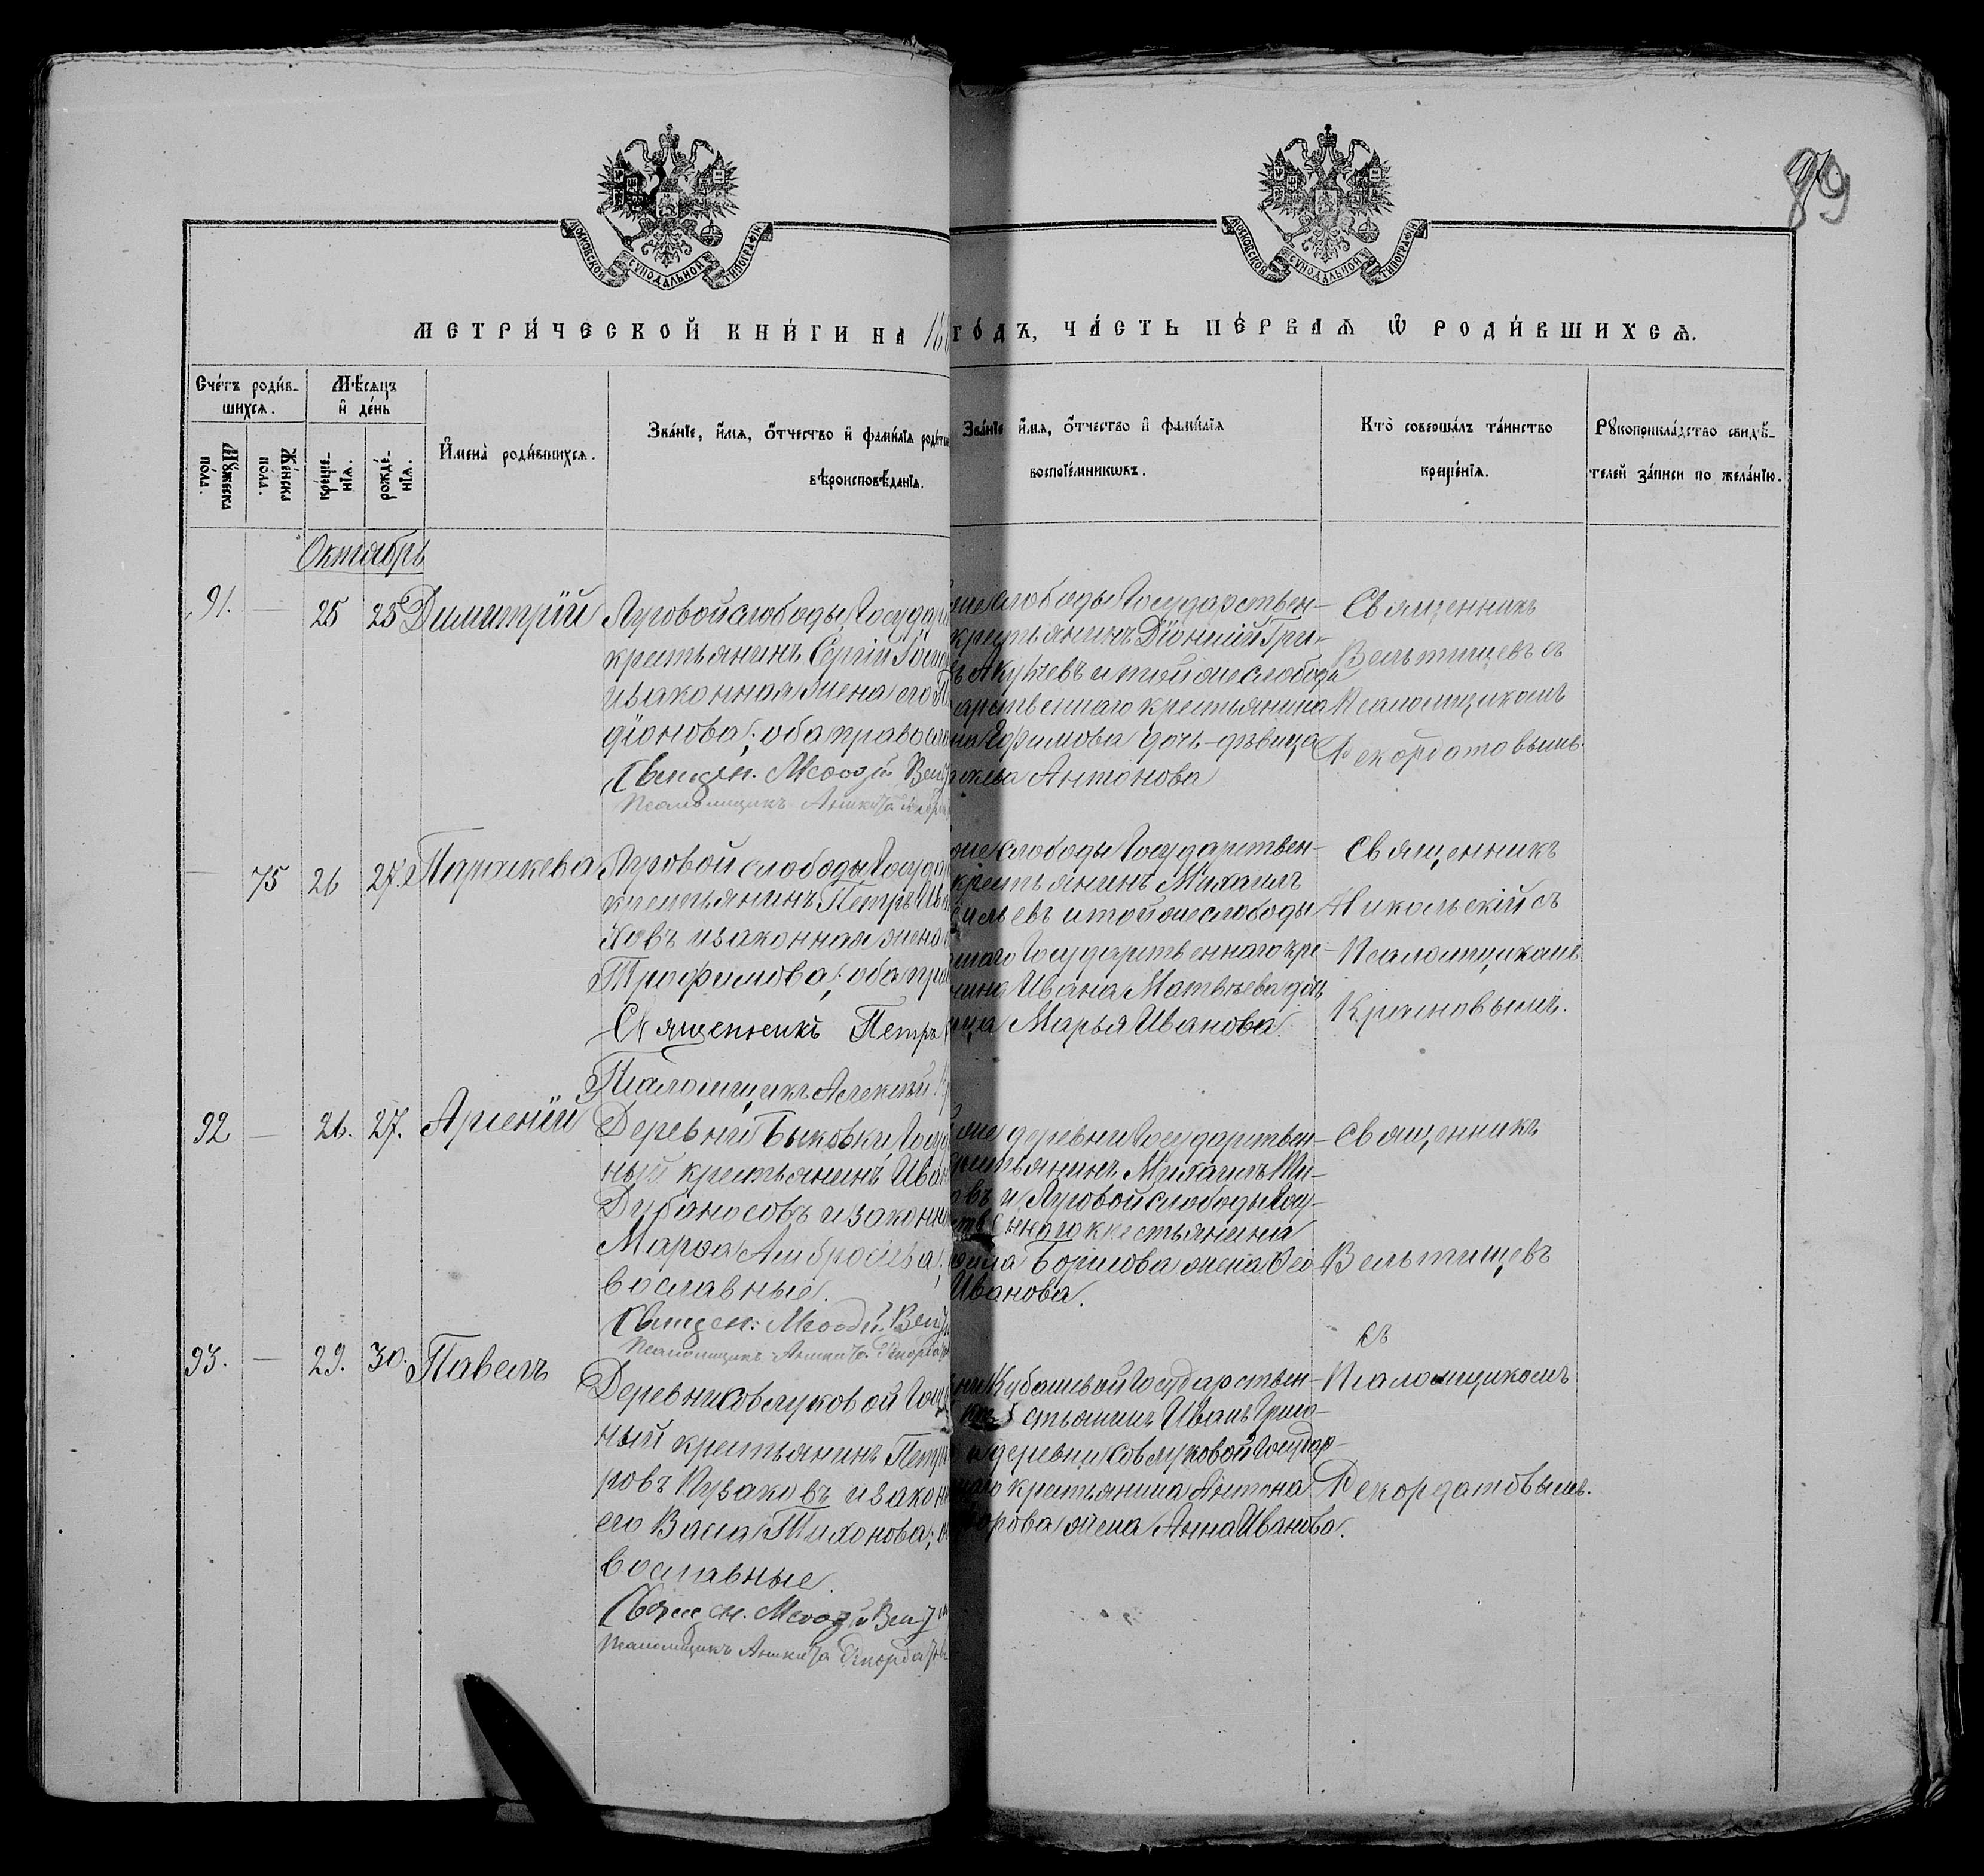 89
МОСКОВСКОЙ СѴНОДАЛЬНОЙ ТИПОГРАФІИ
МОСКОВСКОЙ СѴНОДАЛЬНОЙ ТИПОГРАФІИ
МЕТРИ́ЧЕСКОЙ КНИ́ГИ НА 18
ГО́ДЪ, ЧА́СТЬ ПЕ́РВАЯ Ѿ РОДИ́ВШИХСЯ.
Сче́тъ роди́в-
шихся.
Мꙋ́жеска пола̀.
Же́нска пола̀.
Мѣ́сяцъ
и҆ де́нь
креще́-
нїя.
рожде́-
нїя.
И҆мена̀ роди́вшихся.
Зва́нїе, и҆́мя, ѻ҆́тчество и҆ фами́лїя
вѣроисповѣ́данїя.
Зва́нїе и҆́мя, ѻ҆́тчество и҆ фами́лїя
воспрїе́мникѡвъ.
Кто̀ соверша́лъ та́инство
креще́нїя.
Рꙋкоприкла́дство свидѣ́-
телей за́писи по жела́нїю.
Октябрь
91. — 25 25 Димитрій
Луговой слободы Госуд
крестьянинъ Сергій
и законная жена его
діонова; оба правосл
Священ. Меѳодій
Псаломщикъ
же слободы Государствен-
крестьянинъ Діонисій Гри-
и той же слободы
арственнаго крестьянина
на Ефимова дочь-дѣвица
Антонова
Священникъ
Вельтищевъ съ
Псаломщикомъ
Декордатовымъ.
— 75 26 27. Параскева
Луговой слободы Госуда
крестьянинъ Петръ Ив
ховъ и законная жена
Трофимова; оба пра
Священникъ Петръ
Псаломщикъ Алексѣй
же слободы Государствен-
крестьянинъ Михаилъ
сильевъ и той же слободы
Государственнаго кре-
нина Ивана Матвѣева дочь
ица Марья Иванова.
Священникъ
Никольскій съ
Псаломщикомъ
92 — 26. 27. Арсеній
Деревни Быковки Госу
ный крестьянинъ Иван
и законн
Марѳа Амбросіева;
вославные.
Священ. Меѳодій
Псаломщикъ
же деревни Государствен-
крестьянинъ Михаилъ
въ и Луговой слободы Госу-
ств нного крестьянина
Борисова жена Ѳео
Иванова.
Священникъ
Вельтищевъ
93. — 29. 30. Павелъ
Деревни Совлуковой Госу
ный крестьянинъ Петр
ровъ Пузаковъ и закон
его Васса Тихонова;
вославные.
Священ. Меѳодій
Псаломщикъ
Кубашевой Государствен-
крестьянинъ Иванъ Григо-
и деревни Совлуковой Государ-
наго крестьянина Антона
жена Анна Иванова.
съ
Псаломщикомъ
Декордатовымъ.